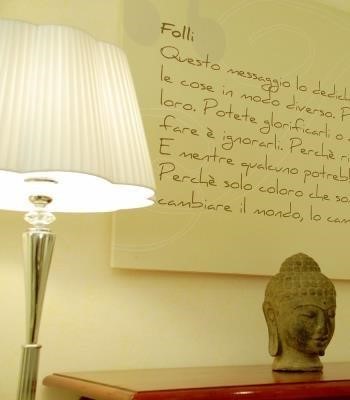 Folli
Questo messaggio lo dedich
le cose in modo diverso.
loro. Potete glorificarli o
fare è ignorarli. Perchè
E mentre qualcuno potreb
Perchè solo coloro che
cambiare il mondo, lo cam